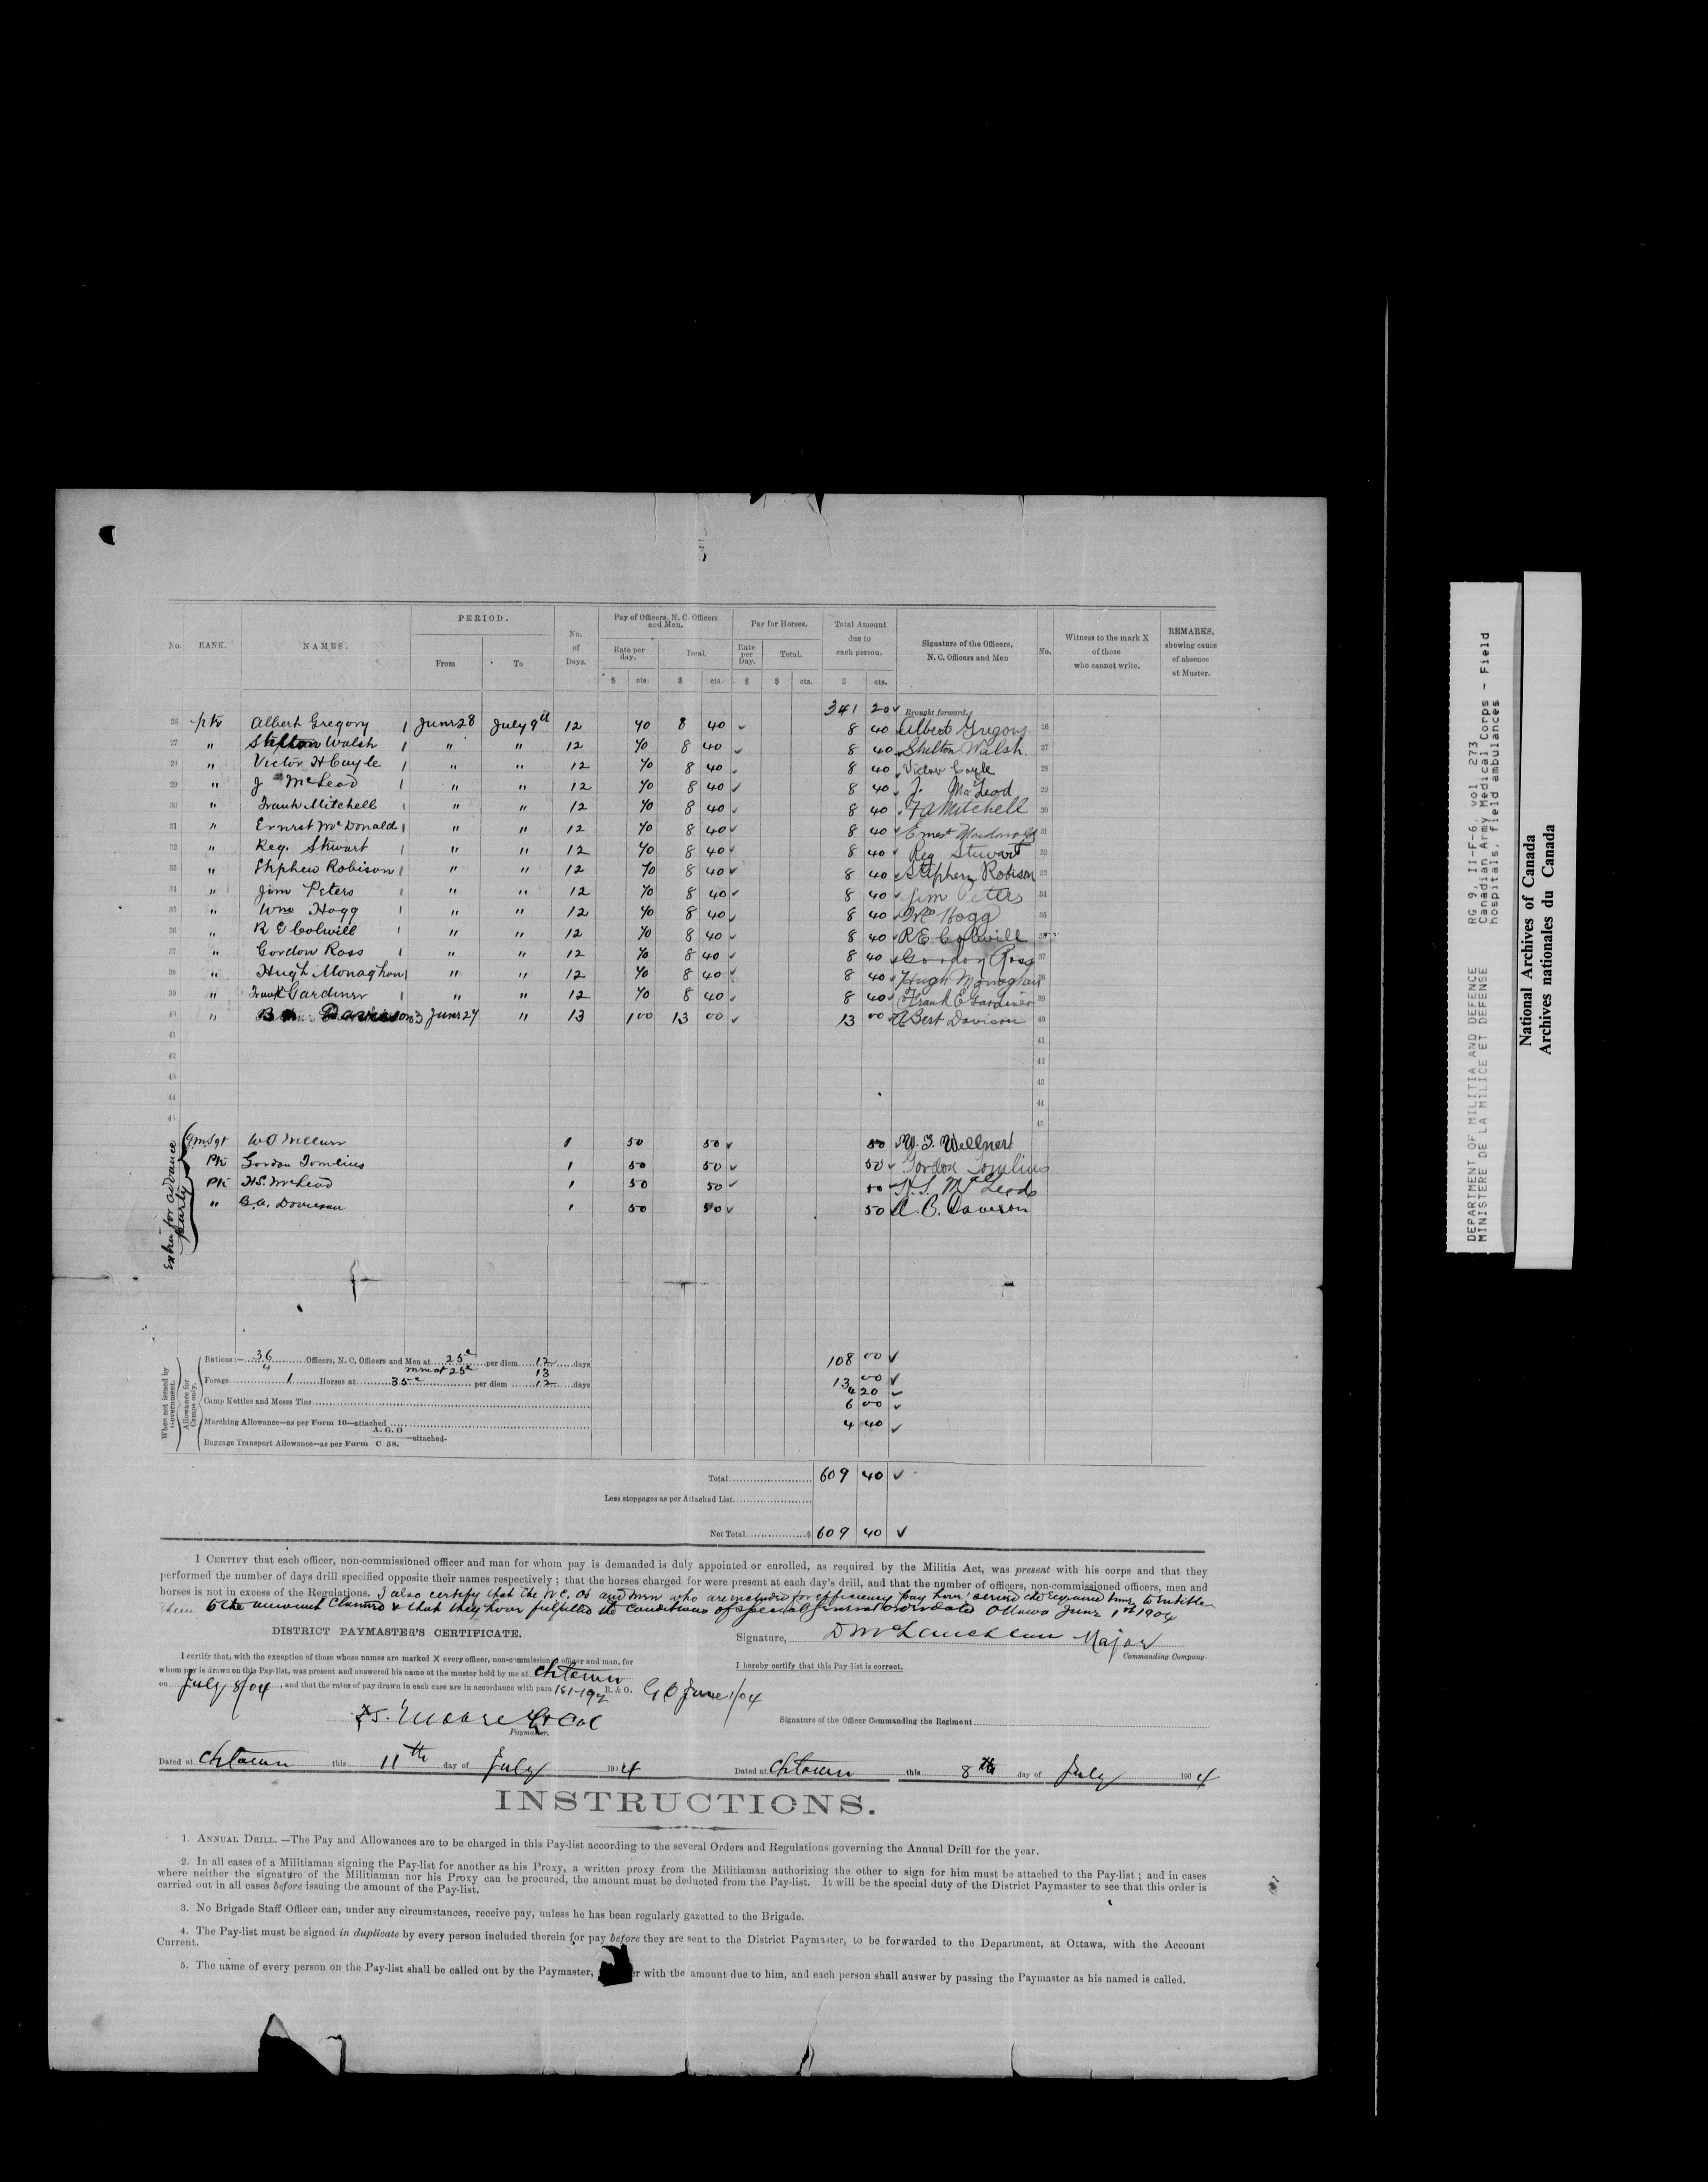 No. RANK. NAMES. PERIOD. From To No. of Days. Pay of Officers, N. C. Officers and Men. Rate per day. $ cts. Total. $ cts. Pay for Horses. Rate per Day. $ Total. $ cts. Total Amount due to each person. $ cts. Signature of the Officers, N. C. Officers and Men No. Witness to the mark X of those who cannot write. REMARKS, showing cause of absence at Muster.
341 20 Brought forward.
26 pte Albert Gregory 1 June 28 July 9th 12 70 8 40 8 40 Albert Gregory 26
27 " Walsh 1 " " 12 70 8 40 8 40 Shelton Walsh 27
28 " Victor H Cuyle 1 " " 12 70 8 40 8 40 Victor Coyle 28
29 " J McLeod 1 " " 12 70 8 40 8 40 J. McLeod 29
30 " Frank Mitchell 1 " " 12 70 8 40 8 40 F A Mitchell 30
31 " Ernest McDonald 1 " " 12 70 8 40 8 40 Ernest Macdonald 31
32 " Reg. Stewart 1 " " 12 70 8 40 8 40 Reg Stewart 32
33 " Stephen Robison 1 " " 12 70 8 40 8 40 Stephen Robison 33
34 " Jim Peters 1 " " 12 70 8 40 8 40 Jim Peters 34
35 " Wm Hogg 1 " " 12 70 8 40 8 40 Wm Hogg 35
36 " R E Colwill 1 " " 12 70 8 40 8 40 R E Colwill 36
37 " Gordon Ross 1 " " 12 70 8 40 8 40 Gordon Ross 37
38 " Hugh Monaghan 1 " " 12 70 8 40 8 40 Hugh Monaghan 38
39 " Frank Gardiner 1 " " 12 70 8 40 8 40 Frank E Gardiner 39
40 " Davison 3 June 27 " 13 1 00 13 00 13 00 A Bert Davison 40
41 41
42 42
43 43
44 44
45 45
Extra for advance party
Q.M.Sgt 1 50 50 50 W. J. Wellner
Pte Gordon Tomlins 1 50 50 50 Gordon Tomlins
Pte H.S. McLeod 1 50 50 50 H. S. McLeod
" B.A. Davison 1 50 50 50 A. B. Davison
When not issued by Government. Allowance for Camps only.
Rations:— 36 Officers, N. C. Officers and Men at 25c per diem 12 days 108 00
4 men at 25c 13 13 00
Forage 1 Horses at 35c per diem 12 days 4 20
Camp Kettles and Messs Tins 6 00
Marching Allowance—as per Form 10—attached 4 40
Baggage Transport Allowance—as per Form A. G. O C 58. —attached.
Total 609 40
Less stoppages as per Attached List.
Net Total $ 609 40
I CERTIFY that each officer, non-commissioned officer and man for whom pay is demanded is duly appointed or enrolled, as required by the Militia Act, was present with his corps and that they
performed the number of days drill specified opposite their names respectively; that the horses charged for were present at each day's drill, and that the number of officers, non-commissioned officers, men and
horses is not in excess of the Regulations. I also certify that the N.C. Os and men who are included for efficiency pay have served the required time to entitle
them to the amount claimed & that they have fulfilled the conditions of special general order dated Ottawa June 1st 1904
DISTRICT PAYMASTER'S CERTIFICATE.
Signature, D McLauchlan Major
Commanding Company.
I certify that, with the exception of those whose names are marked X every officer, non-commission officer and man, for
whom pay is drawn on this Pay-list, was present and answered his name at the muster held by me at Chtown
on July 8/04, and that the rates of pay drawn in each case are in accordance with para 181-192 R. & O. G O June 1/04
I hereby certify that this Pay-list is correct.
F.S. Moore Lt Col
Paymaster.
Signature of the Officer Commanding the Regiment
Dated at Chtown this 11th day of July 1914
Dated at Chtown this 8th day of July 1904
INSTRUCTIONS.
1. ANNUAL DRILL.—The Pay and Allowances are to be charged in this Pay-list according to the several Orders and Regulations governing the Annual Drill for the year.
2. In all cases of a Militiaman signing the Pay-list for another as his Proxy, a written proxy from the Militiaman authorizing the other to sign for him must be attached to the Pay-list; and in cases
where neither the signature of the Militiaman nor his Proxy can be procured, the amount must be deducted from the Pay-list. It will be the special duty of the District Paymaster to see that this order is
carried out in all cases before issuing the amount of the Pay-list.
3. No Brigade Staff Officer can, under any circumstances, receive pay, unless he has been regularly gazetted to the Brigade.
4. The Pay-list must be signed in duplicate by every person included therein for pay before they are sent to the District Paymaster, to be forwarded to the Department, at Ottawa, with the Account
Current.
5. The name of every person on the Pay-list shall be called out by the Paymaster, er with the amount due to him, and each person shall answer by passing the Paymaster as his named is called.
DEPARTMENT OF MILITIA AND DEFENCE RG 9, II-F-6, vol 273
MINISTERE DE LA MILICE ET DEFENSE Canadian Army Medical Corps - Field
hospitals, field ambulances
National Archives of Canada
Archives nationales du Canada